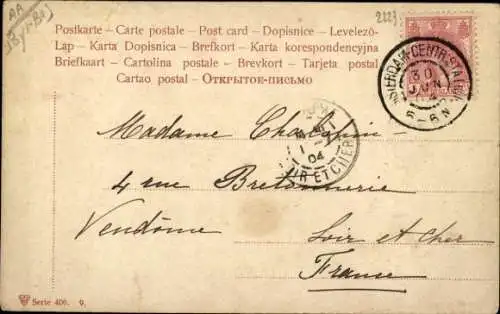 Postkarte – Carte postale – Post card – Dopisnice – Levelező-
Lap – Karta Dopisnica – Brefkort – Karta korespondencyjna
Briefkaart – Cartolina postale – Brevkort – Tarjeta postal
Cartao postal – Открытое-письмо
AMSTERDAM-CENTR:STATION
30
JUN
5-6 N
1
04
LOIR ET CHER
Madame
4 rue Bretonnerie
Vendôme
Loir et Cher
France
Serie 406. 9.